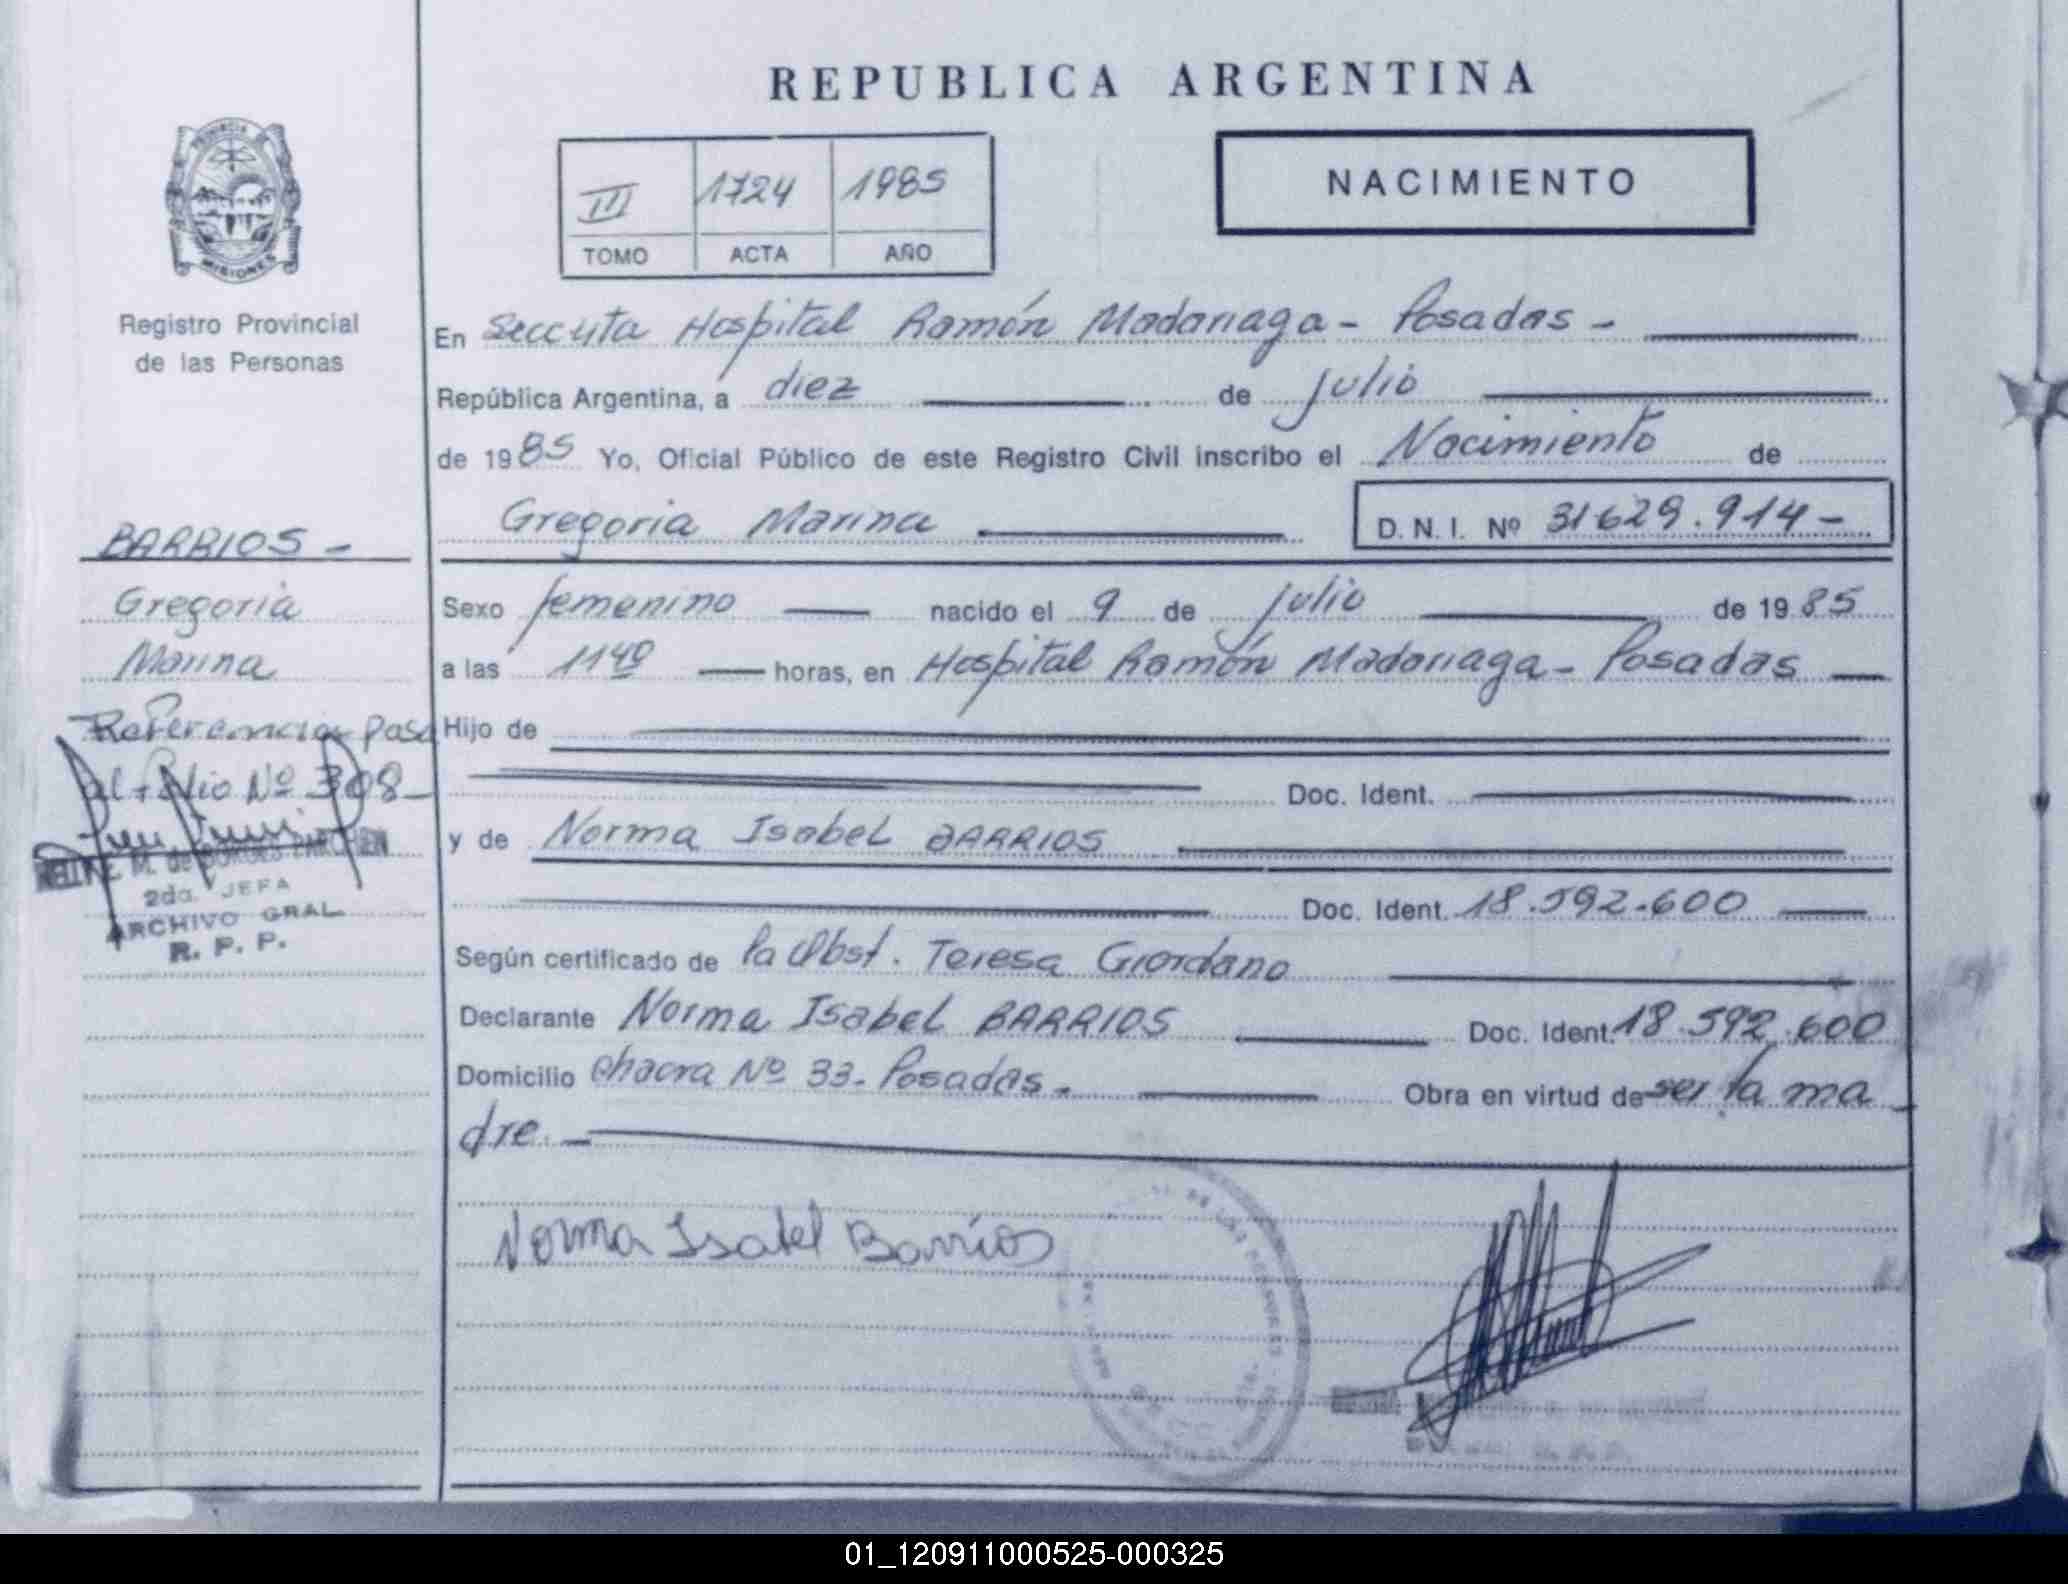 REPUBLICA ARGENTINA
PROVINCIA
MISIONES
Registro Provincial
de las Personas
III 1724 1985
TOMO ACTA AÑO
NACIMIENTO
En Secc 4ta Hospital Ramón Madariaga - Posadas -
República Argentina, a diez de julio
de 1985 Yo, Oficial Público de este Registro Civil inscribo el Nacimiento de
Gregoria Marina D. N. I. Nº 31629.914-
BARRIOS -
Gregoria
Marina
Referencia pasa
al folio Nº 308-
M. de BORGES
2da. JEFA
ARCHIVO GRAL
R. P. P.
Sexo femenino nacido el 9 de julio de 1985
a las 1140 horas, en Hospital Ramón Madariaga - Posadas
Hijo de
Doc. Ident.
y de Norma Isabel BARRIOS
Doc. Ident. 18.592.600
Según certificado de la Obst. Teresa Giordano
Declarante Norma Isabel BARRIOS Doc. Ident. 18.592.600
Domicilio Chacra Nº 33- Posadas. Obra en virtud de ser la ma
dre.
Norma Isabel Barrios
DE LAS PERSONAS
01_120911000525-000325